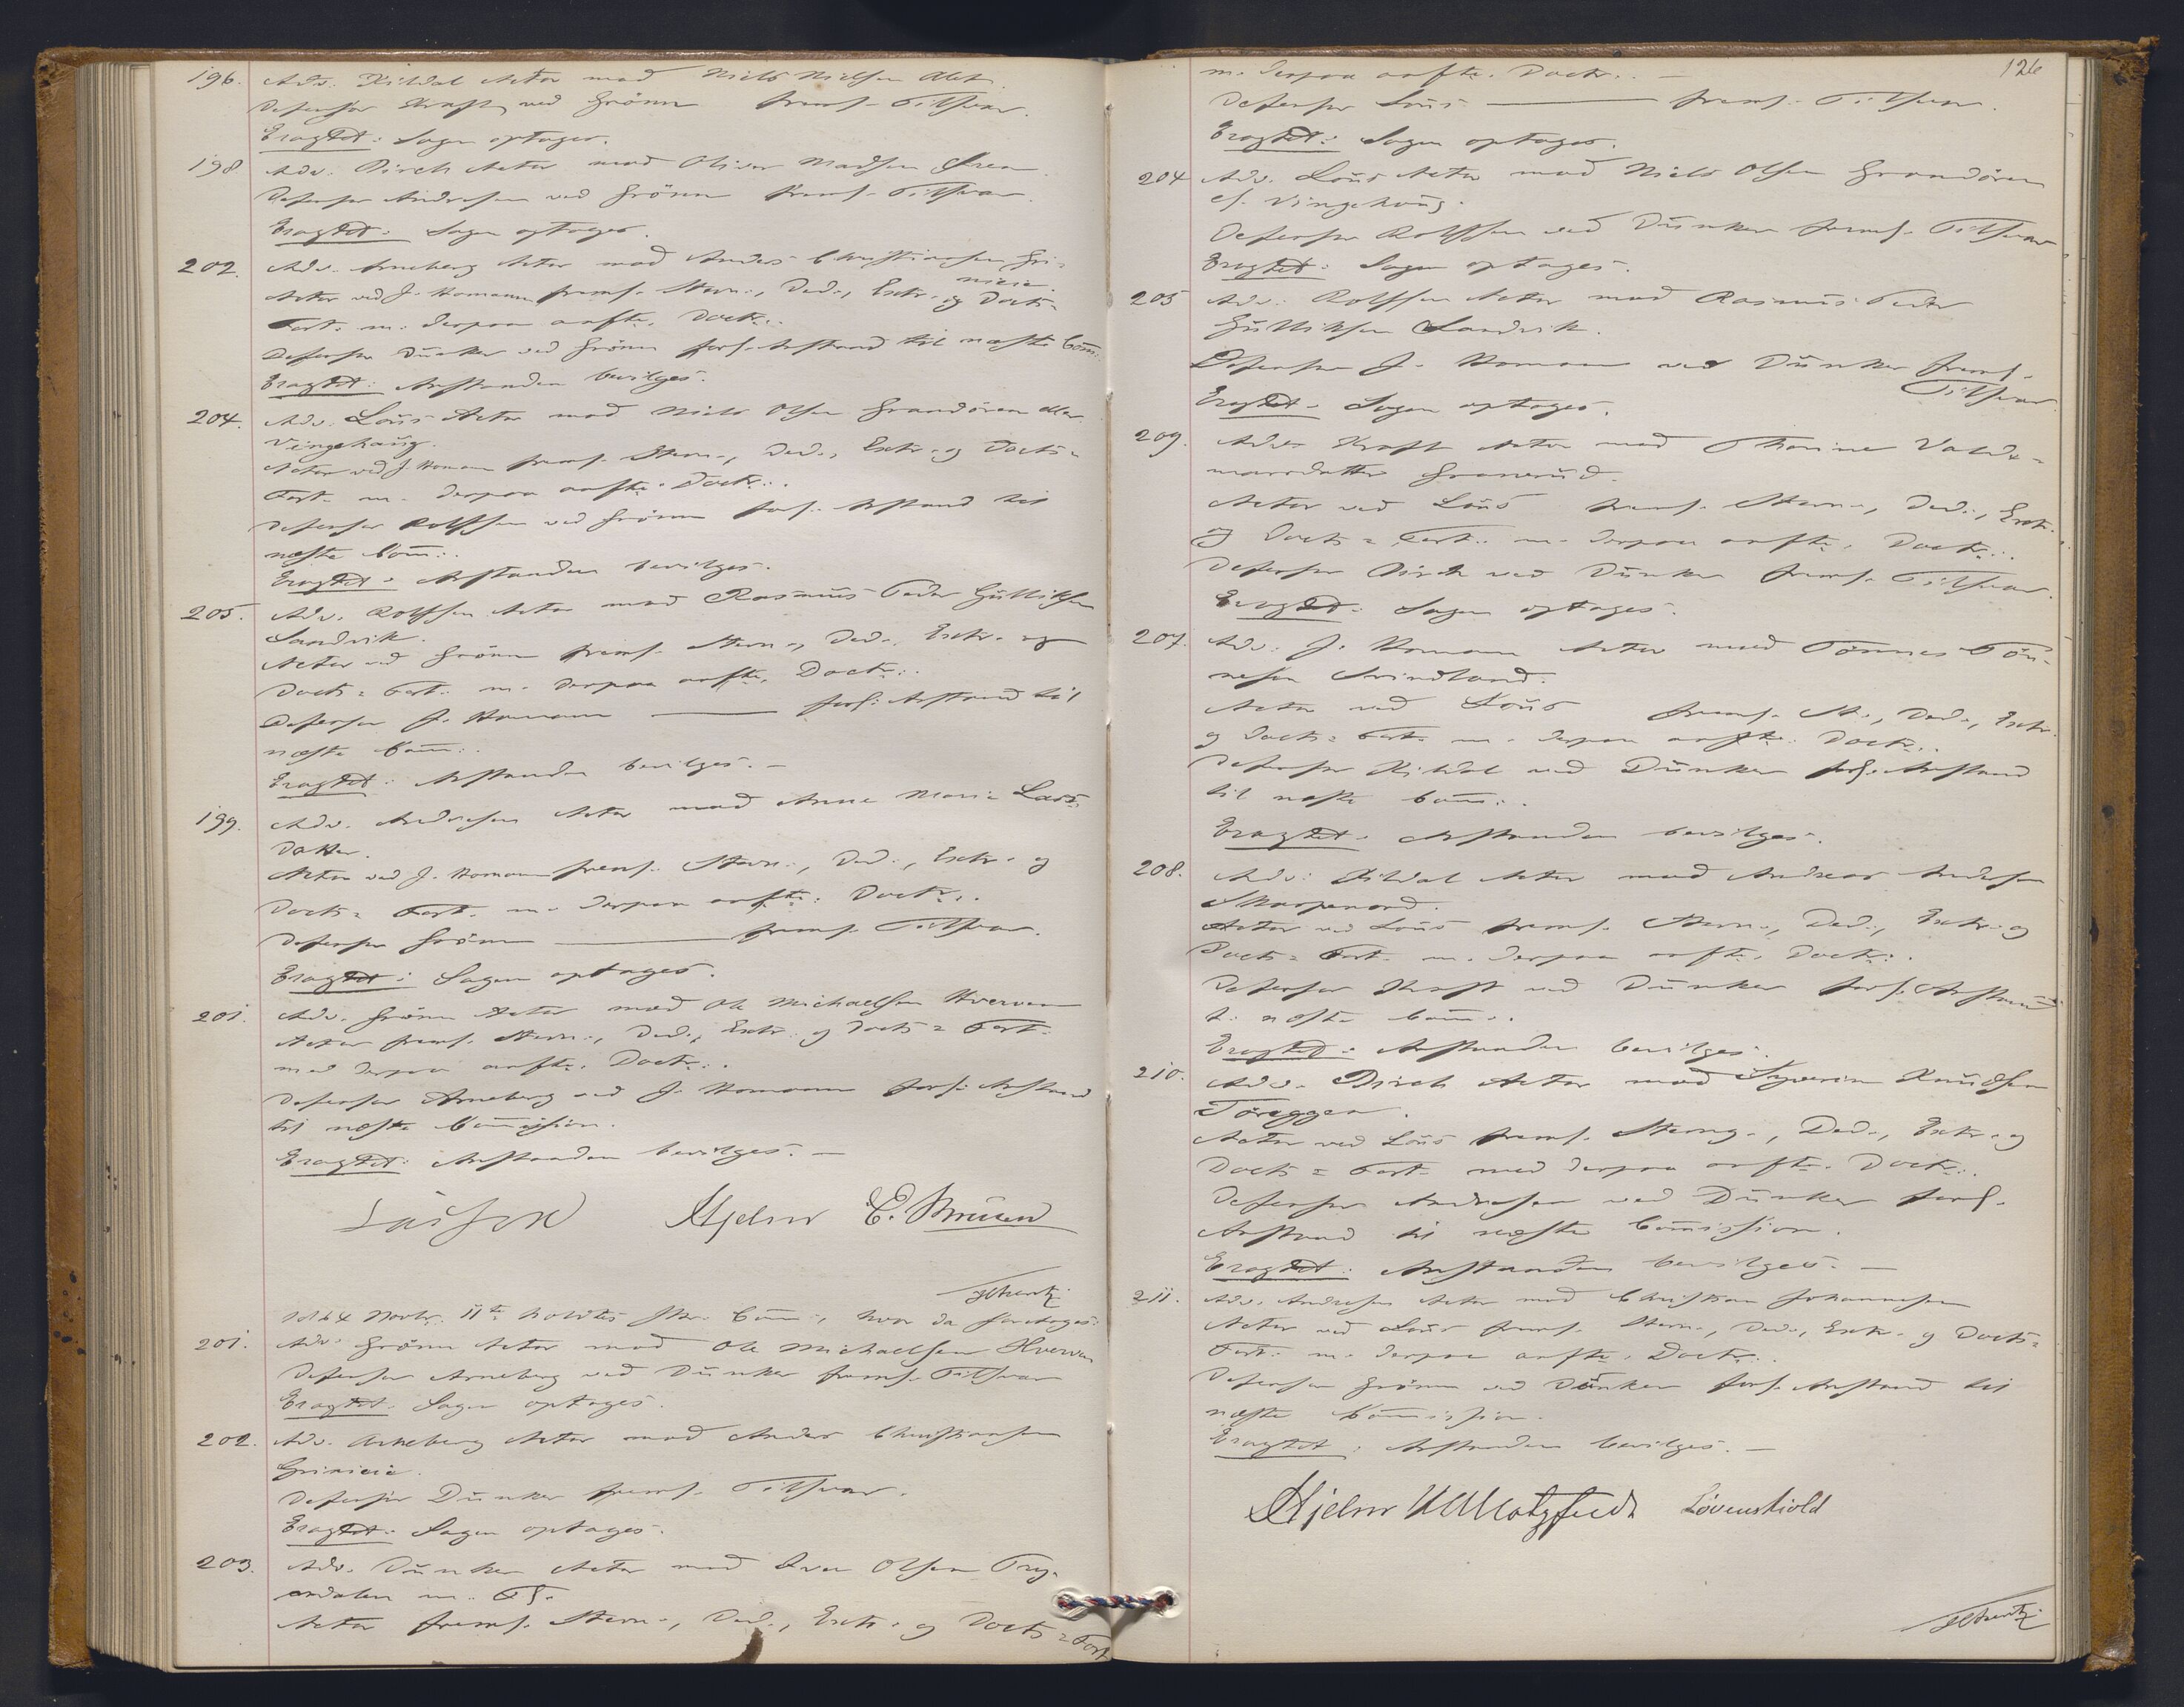 196. Adv. Kildal Actor mod Niels Nielsen
Defensor Kraft ved Grönn freml. Tilsvar.
Eragtet: Sagen optages.
198 Adv. Birch Actor mod Oliver Madsen
Defensor Andresen ved Grönn freml. Tilsvar.
Eragtet: Sagen optages.
202. Adv. Arneberg Actor mod Anders Christiansen Gri-
nieie.
Actor ved J. Homann freml. Stevn., Ded., Extr. og Docts=
Fort. m. derpaa anfte. Doctr..
Defensor Dünker ved Grönn forl. Anstand til næste Com:
Eragtet: Anstanden bevilges.
204. Adv. Loüs Actor mod Niels Olsen Grandören eller
Vingehaüg.
Actor ved J. Homann freml. Stevn., Ded., Extr. og Docts=
Fort. m. derpaa anfte. Doctr..
Defensor Rolfsen ved Grönn forl. Anstand til
næste Com:.
Eragtet: Anstanden bevilges.
205. Adv. Rolfsen Actor mod Rasmüs Peder Gülliksen
Sandvik.
Actor ved Grönn freml. Stevn., Ded., Extr. og
Docts= Fort. m. derpaa anfte. Doctr..
Defensor J. Homann ——— forl. Anstand til
næste Com:.
Eragtet: Anstanden bevilges. —
199. Adv. Andresen Actor mod Anne Marie Lars-
datter.
Actor ved J. Homann freml. Stevn., Ded., Extr. og
Docts= Fort. m. derpaa anfte. Doctr..
Defensor Grönn ——— freml. Tilsvar.
Eragtet: Sagen optages.
201. Adv. Grönn Actor mod Ole Michaelsen Hverven
Actor freml. Stevn., Ded., Extr. og Docts= Fort.
med derpaa anfte. Doctr..
Defensor Arneberg ved J. Homann forl. Anstand
til næste Commission.
Eragtet: Anstanden bevilges. —
Lasson Hjelm E. Motzfeldt
1864 Novbr. 11te holdtes Com:, hvor da foretoges:
201. Adv. Grönn Actor mod Ole Michaelsen Hverven
Defensor Arneberg ved Dünker freml. Tilsvar
Eragtet: Sagen optages.
202. Adv. Arneberg Actor mod Anders Christiansen
Grinieie.
Defensor Dünker freml. Tilsvar.
Eragtet: Sagen optages.
203. Adv. Dünker Actor mod Iver Olsen
m. Fl.
Actor freml. Stevn., Ded., Extr. og Docts=Fort
126
m. derpaa anfte. Doctr.. —
Defensor Loüs ——— freml. Tilsvar.
Eragtet: Sagen optages.
204 Adv. Loüs Actor mod Niels Olsen Grandören
el. Vingehaüg.
Defensor Rolfsen ved Dünker freml. Tilsvar
Eragtet: Sagen optages.
205 Adv. Rolfsen Actor mod Rasmüs Peder
Gülliksen Sandvik.
Defensor J. Homann ved Dünker freml.
Tilsvar
Eragtet: Sagen optages.
209. Adv. Kraft Actor mod Thorine Valde-
marsdatter Granerüd.
Actor ved Loüs freml. Stevn., Ded., Extr.
og Docts= Fort. m. derpaa anfte. Doctr..
Defensor Birch ved Dünker freml. Tilsvar.
Eragtet: Sagen optages.
207. Adv. J. Homann Actor mod Tönnes Tön-
nesen Svindland.
Actor ved Loüs freml. St., Ded., Extr.
og Docts= Fort. m. derpaa anfte. Doctr..
Defensor Kildal ved Dünker forl. Anstand
til næste Com:.
Eragtet: Anstanden bevilges.
208. Adv. Kildal Actor mod Andreas Andersen
Skarpenord.
Actor ved Loüs freml. Stevn., Ded., Extr. og
Docts= Fort. m. derpaa anfte. Doctr..
Defensor Kraft ved Dünker forl. Anstand
t. næste Com:.
Eragtet: Anstanden bevilges.
210. Adv. Birch Actor mod Severin Knüdsen
Töreggen.
Actor ved Loüs freml. Stevng., Ded., Extr. og
Docts= Fort. med derpaa anfte. Doctr..
Defensor Andresen ved Dünker forl.
Anstand til næste Commission.
Eragtet: Anstanden bevilges. —
211. Adv. Andresen Actor mod Christian Johannesen
Actor ved Loüs freml. Stevn., Ded., Extr. og Docts=
Fort. m. derpaa anfte. Doctr..
Defensor Grönn ved Dünker forl. Anstand til
næste Commission.
Eragtet: Anstanden bevilges. —
Hjelm Motzfeldt Lövenskiold